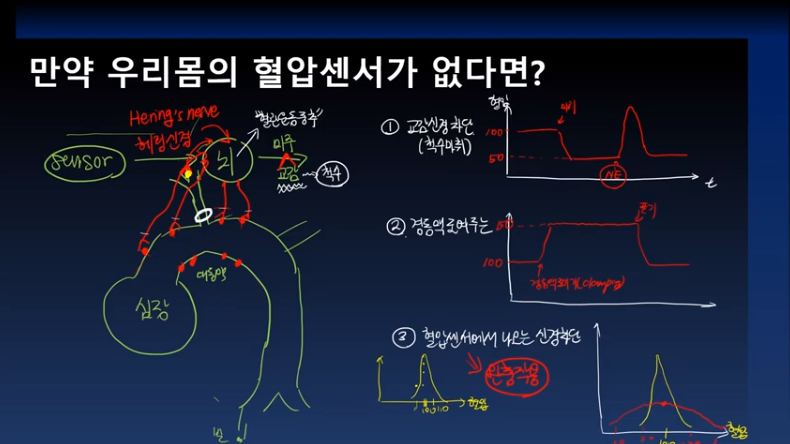 만약 우리몸의 혈압센서가 없다면?
Hering's nerve
헤링신경
sensor
뇌
"혈관운동중추"
미주
교감
척수
심장
대동맥
발
① 교감신경차단
(척수마취)
혈압
100
50
마취
NE
t
② 경동맥조여주는
150
100
풀기
③ 혈압센서에서 나오는 신경차단
완충작용
100
혈압
100
혈압